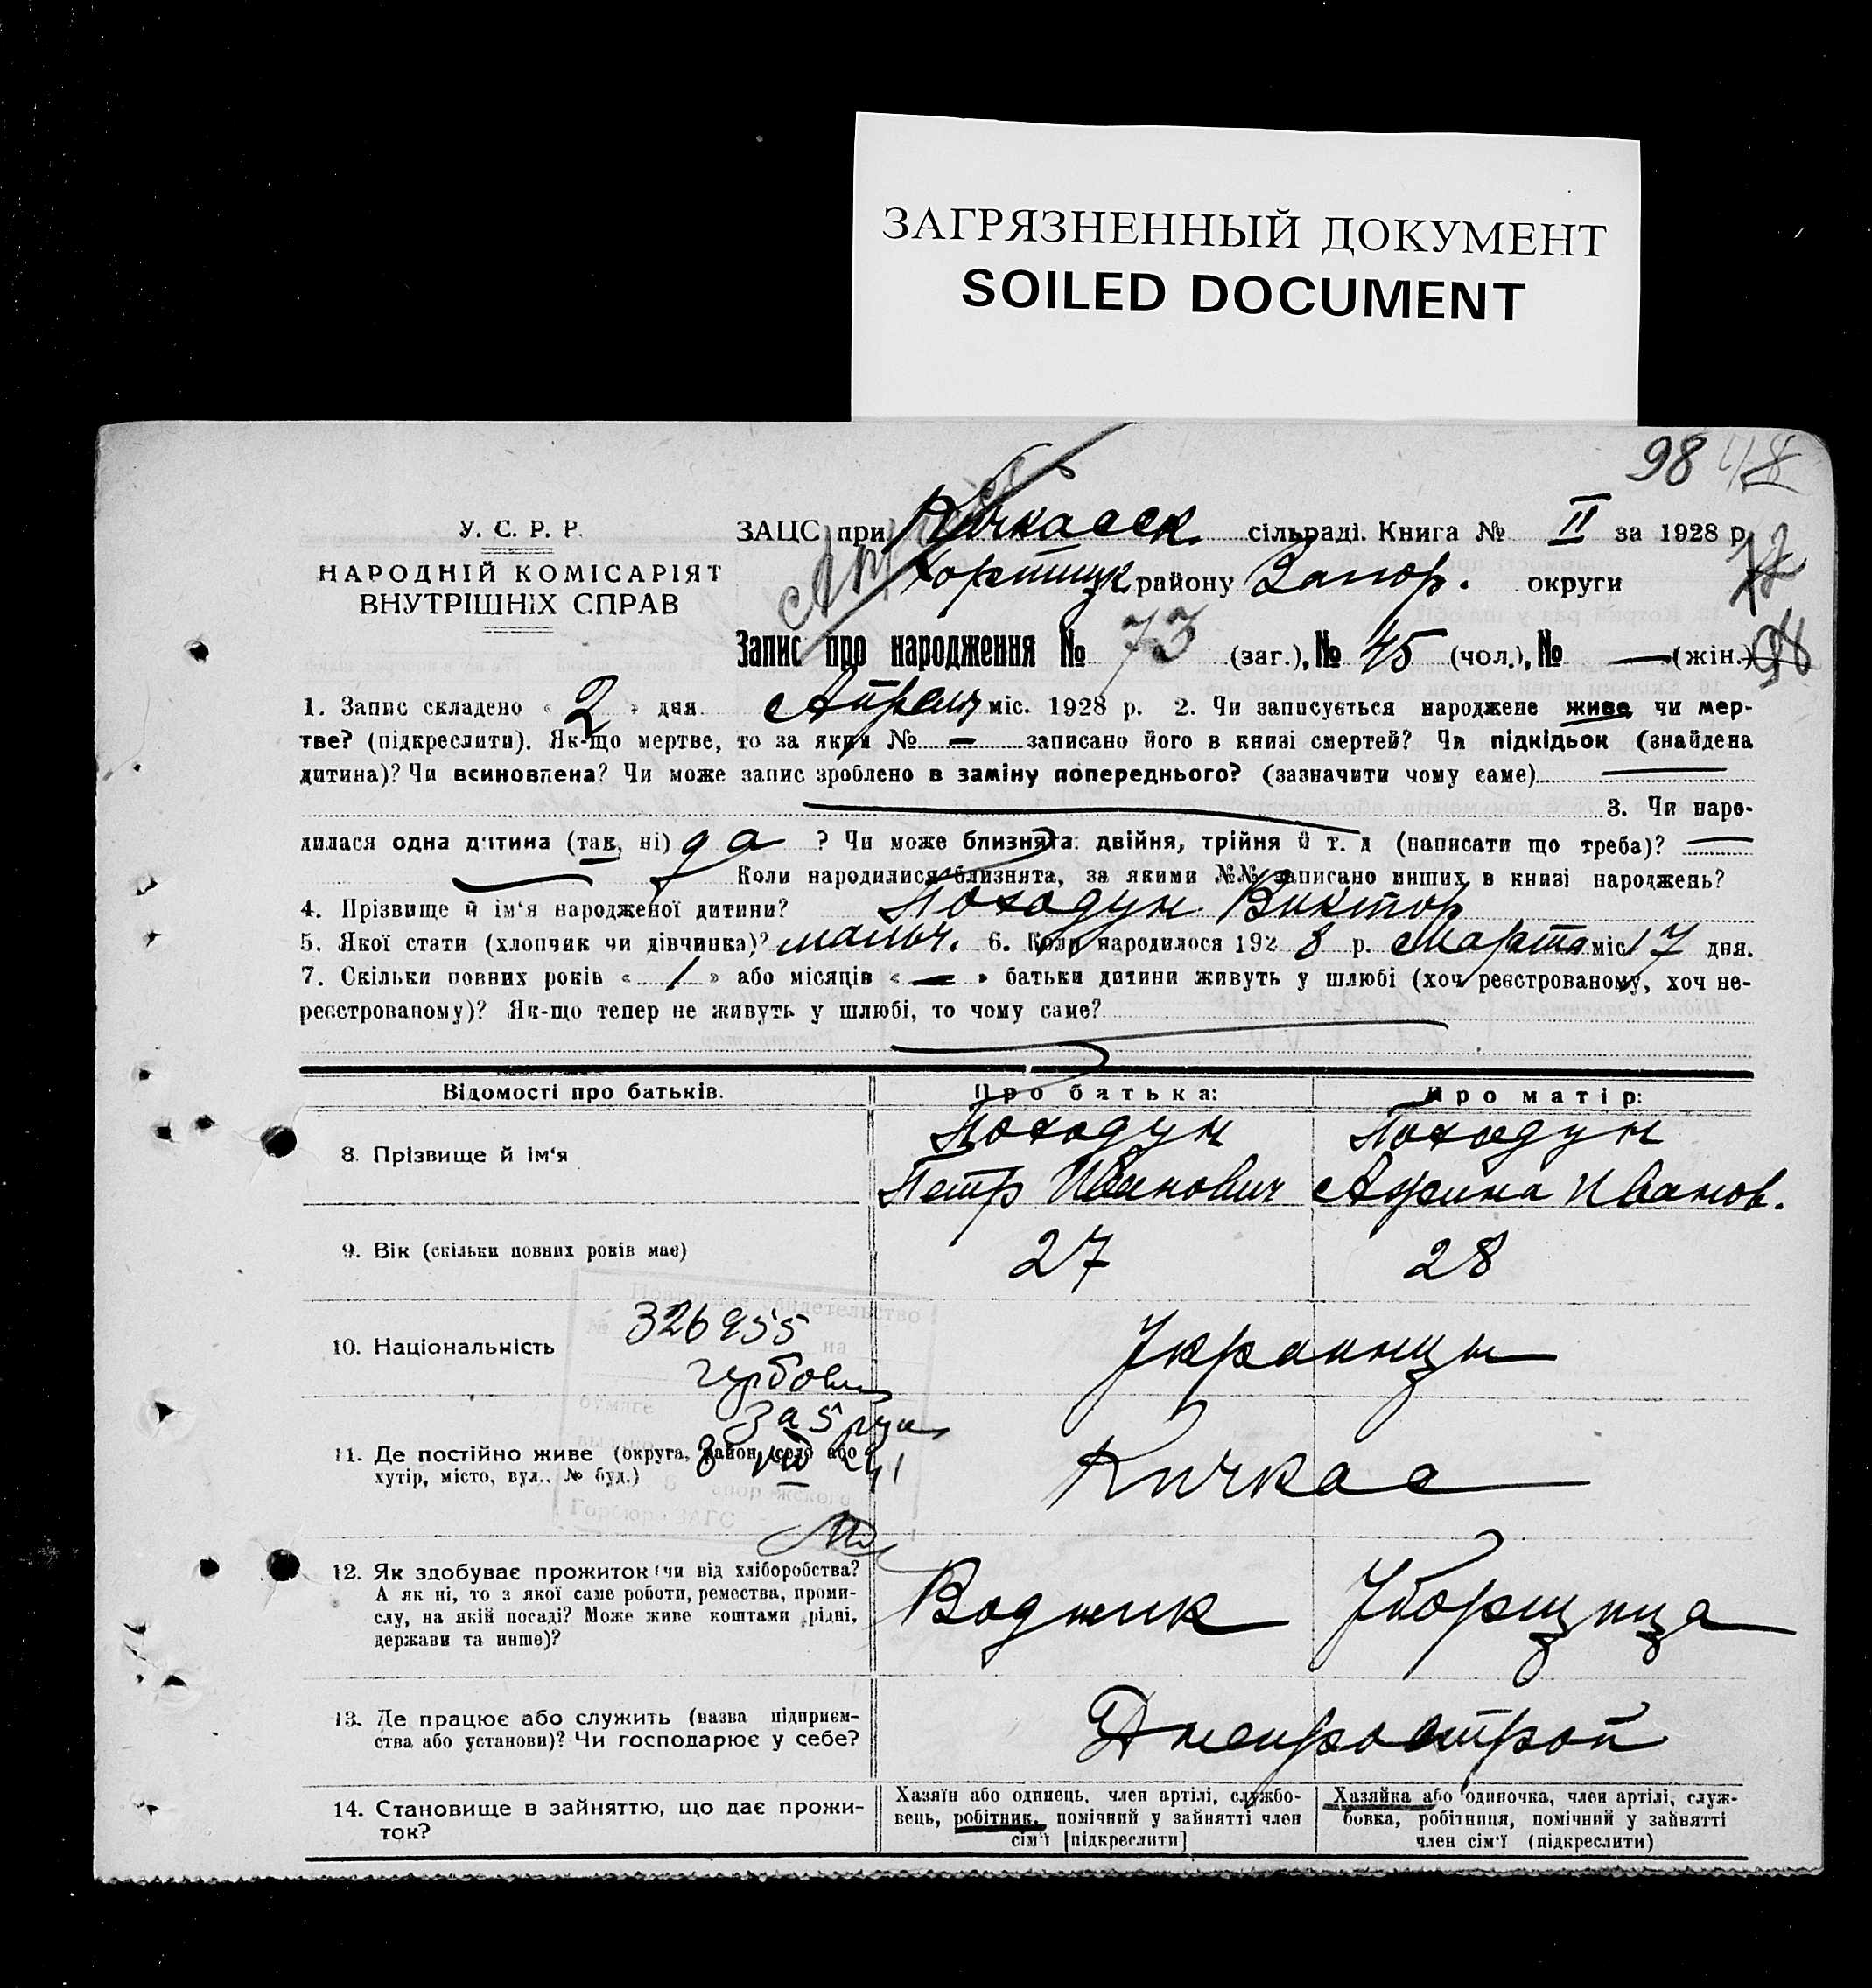 ЗАГРЯЗНЕННЫЙ ДОКУМЕНТ
SOILED DOCUMENT
98 48
У. С. Р. Р.
НАРОДНІЙ КОМІСАРІЯТ
ВНУТРІШНІХ СПРАВ
ЗАЦС при Кичкасск. сільраді. Книга № II за 1928 р.
72
Хортицк району Запор. округи
Запис про народження № 73 (заг.), № 45 (чол.), № — (жін.) 98
1. Запис складено « 2 » дня Апреля міс. 1928 р. 2. Чи записується народжене живе чи мер-
тве? (підкреслити). Як-що мертве, то за яким № — записано його в книзі смертей? Чи підкідьок (знайдена
дитина)? Чи всиновлена? Чи може запис зроблено в заміну попереднього? (зазначити чому саме) —
3. Чи наро-
дилася одна дитина (так, ні) да ? Чи може близнята: двійня, трійня й т. д (написати що треба)? —
Коли народилися близнята, за якими №№ записано инших в книзі народжень?
4. Прізвище й ім‘я народженої дитини? Походун Виктор
5. Якої стати (хлопчик чи дівчинка)? мальч. 6. Коли народилося 1928 р. Марта міс 17 дня.
7. Скільки повних років « 1 » або місяців « — » батьки дитини живуть у шлюбі (хоч реєстрованому, хоч не-
реєстрованому)? Як-що тепер не живуть у шлюбі, то чому саме?
Відомості про батьків. Про батька: Про матір:
8. Прізвище й ім‘я Походун Походун
Петр Иванович Иванов.
9. Вік (скільки повних років має) 27 28
свидетельство
№ 326955 на
10. Національність Украинцы
гербовы
бумаге
за 5 рук
11. Де постійно живе (округа, район, село або
хутір, місто, вул.. № буд.) Кичкас
8 VIII 41
Горбюро ЗАГС
12. Як здобуває прожиток (чи від хліборобства?
А як ні, то з якої саме роботи, ремества, проми-
слу, на якій посаді? Може живе коштами рідні,
держави та инше)? Водник Уборщица
13. Де працює або служить (назва підприєм-
ства або установи)? Чи господарює у себе? Днепрострой
14. Становище в зайняттю, що дає прожи-
ток?
Хазяїн або одинець, член артілі, службо-
вець, робітник, помічний у зайнятті член
сім‘ї [підкреслити]
Хазяйка або одиночка, член артілі, служ-
бовка, робітниця, помічний у зайнятті
член сім‘ї (підкреслити)